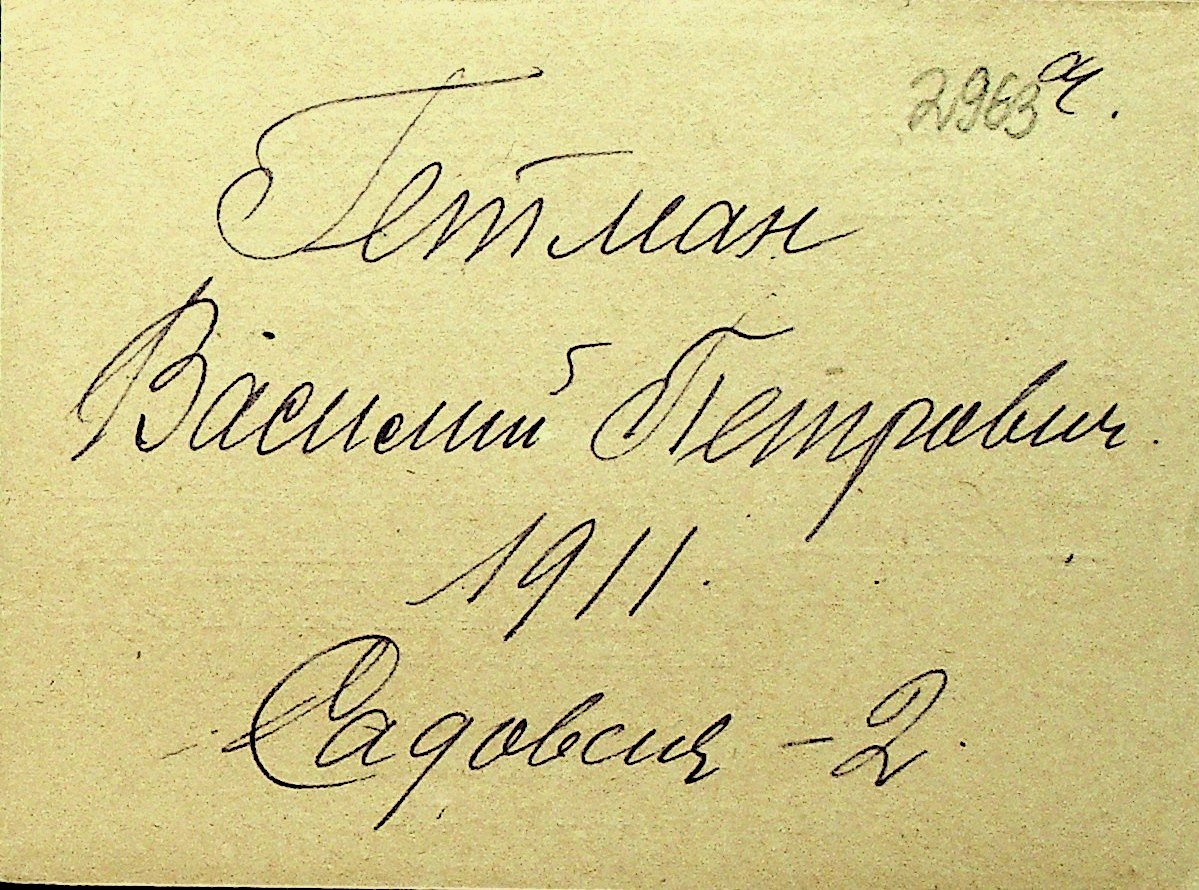 2963 а.
Гетман
Василий Петрович.
1911.
Садовсия - 2.